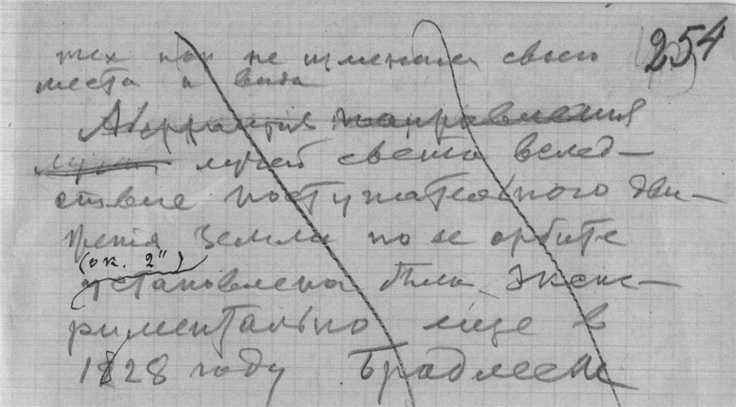 254
тех пор не изменили своего
места и вида
Аберрация направления
лучей света вслед-
ствие поступательного дви-
жения Земли по ее орбите
(ок. 2")
установлена была экспе-
риментально еще в
1828 году Брадлеем